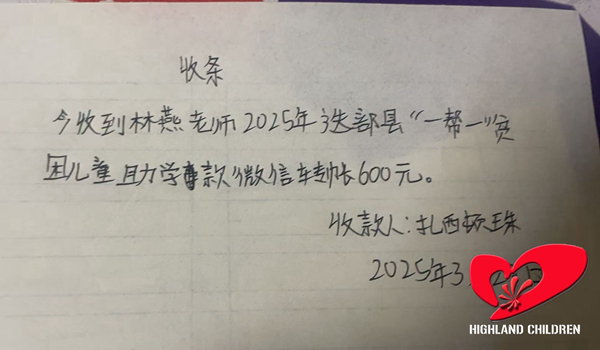 收条
今收到林燕老师2025年迭部县“一帮一”贫
困儿童助学款微信转帐600元。
收款人:扎西顿珠
2025年3
HIGHLAND CHILDREN